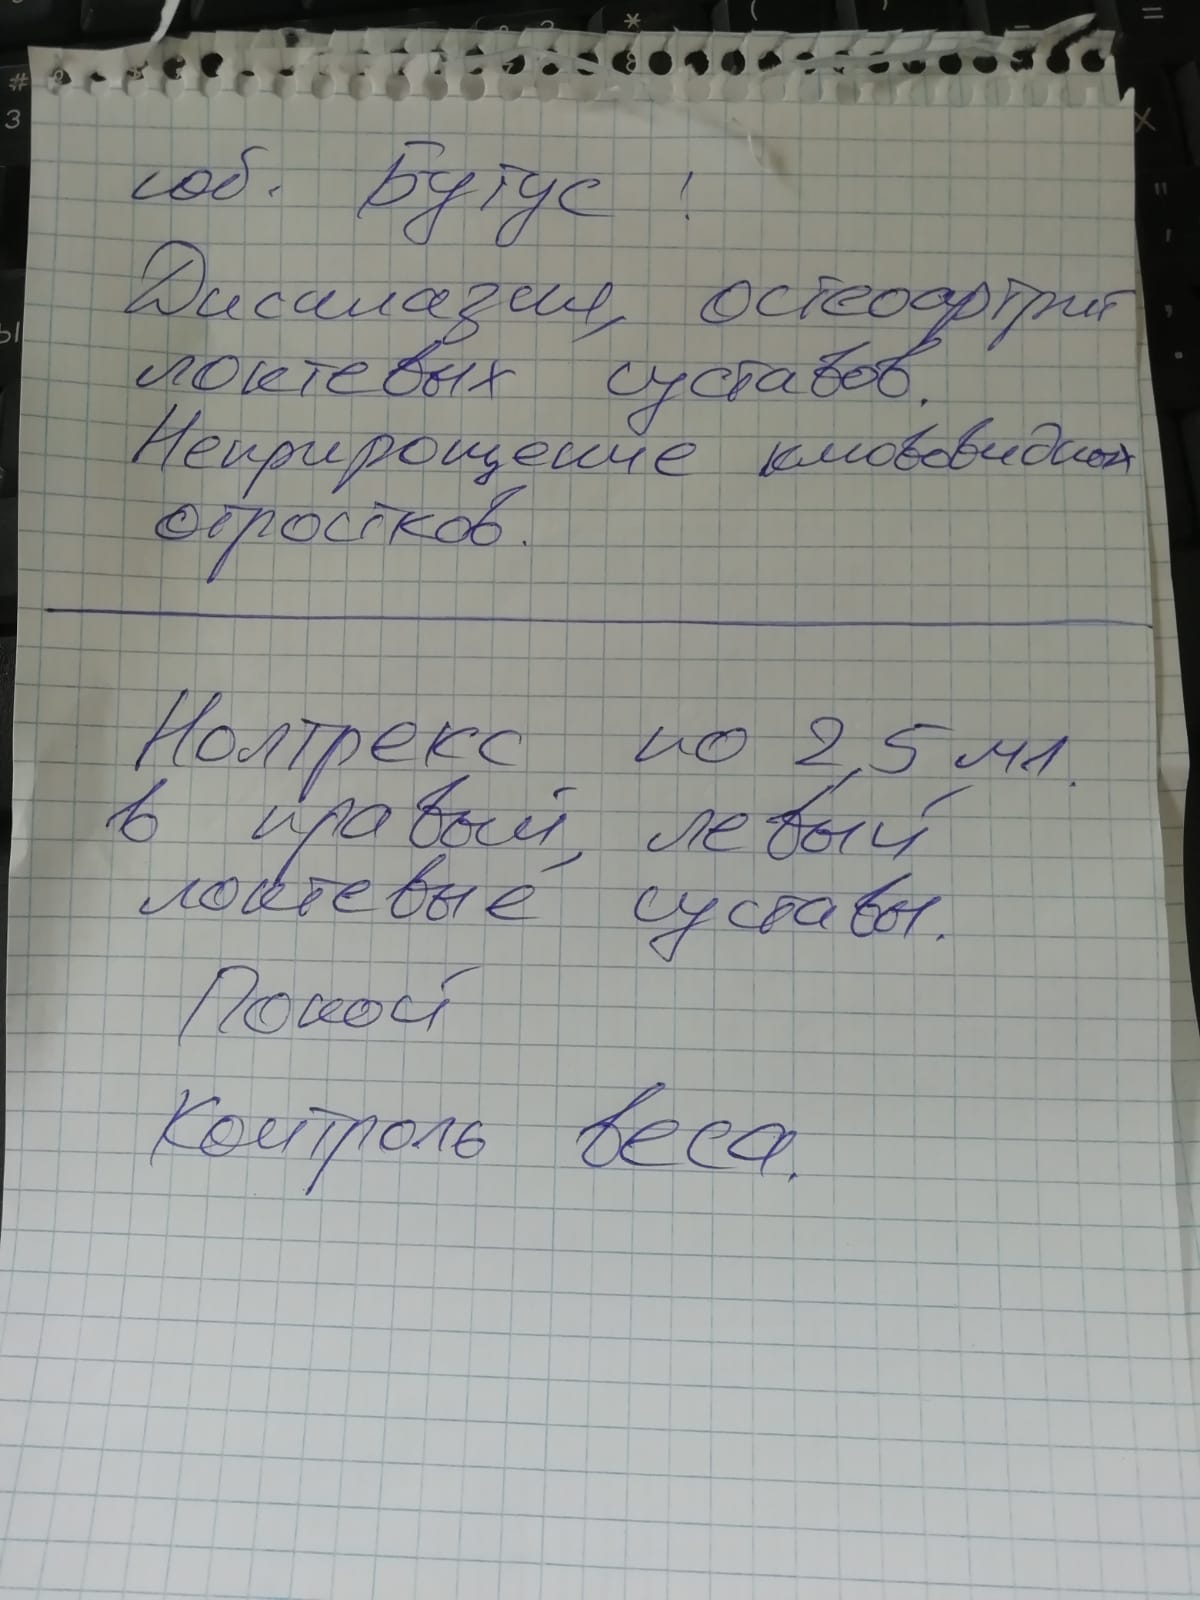 соб. Бутус!
Дисплазия, остеоартрит
локтевых суставов.
Неприрощение клювовидных
отростков.
Нолтрекс по 2,5 мл.
в правый, левый
локтевые суставы.
Покой
Контроль веса.